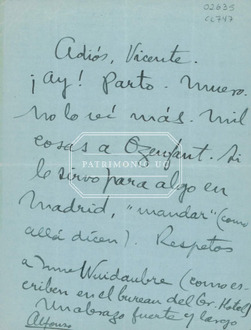 02635
CL747
Adiós, Vicente.
¡Ay! Parto. Muero.
No lo veré más. Mil
cosas a Ozenfant. Si
le sirvo para algo en
Madrid, "mandar" (como
allá dicen). Respetos
a Mme Wuidaubre (como es-
criben en el bureau del Gr. Hotel)
Un abrazo fuerte y largo
Alfonso
PATRIMONIO UC